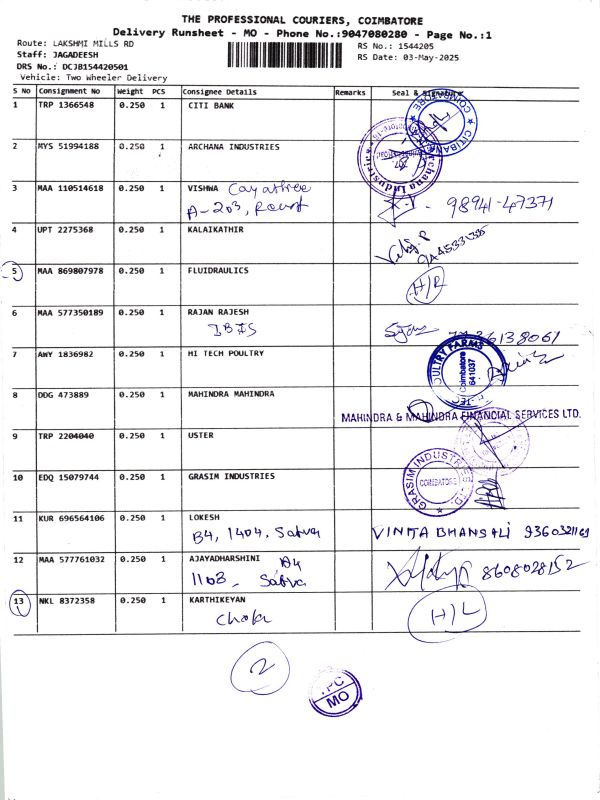 THE PROFESSIONAL COURIERS, COIMBATORE
Delivery Runsheet - MO - Phone No.:9047080280 - Page No.:1
Route: LAKSHMI MILLS RD
RS No.: 1544205
Staff: JAGADEESH
RS Date: 03-May-2025
DRS No.: DCJB154420501
Vehicle: Two Wheeler Delivery
S No Consignment No Weight PCS Consignee Details Remarks Seal & Signature
1 TRP 1366548 0.250 1 CITI BANK
CITIBANK COIMBATORE
2 MYS 51994188 0.250 1 ARCHANA INDUSTRIES
Archana Industries
3 MAA 110514618 0.250 1 VISHWA Gayathree
A-203, 98941-47371
4 UPT 2275368 0.250 1 KALAIKATHIR
5 MAA 869807978 0.250 1 FLUIDRAULICS
H/R
6 MAA 577350189 0.250 1 RAJAN RAJESH
IBIS
7 AWY 1836982 0.250 1 HI TECH POULTRY
POULTRY FARMS
Coimbatore
641037
8 DDG 473889 0.250 1 MAHINDRA MAHINDRA
MAHINDRA & MAHINDRA FINANCIAL SERVICES LTD.
9 TRP 2204040 0.250 1 USTER
10 EDQ 15079744 0.250 1 GRASIM INDUSTRIES
GRASIM INDUSTRIES LTD.
COIMBATORE
11 KUR 696564106 0.250 1 LOKESH
B4, 1404, Satva VINITA BHANSALI 9360321169
12 MAA 577761032 0.250 1 AJAYADHARSHINI A4
1103 - Satva 8608028152
13 NKL 8372358 0.250 1 KARTHIKEYAN
H/L
2
TPC
MO